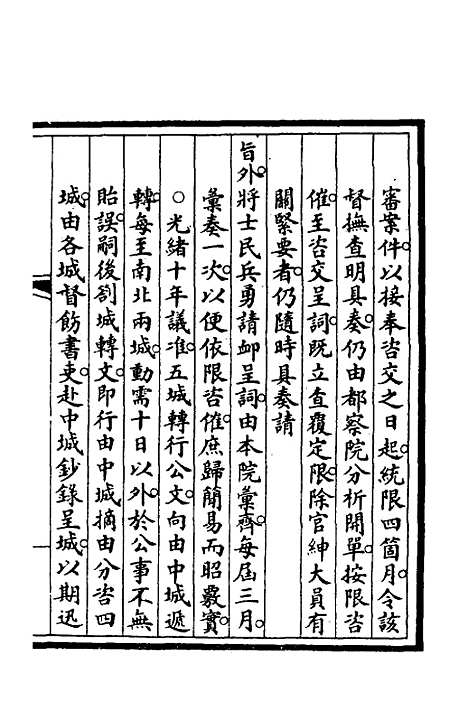 審案件。以接奉咨交之日起。統限四箇月。令該
督撫查明具奏。仍由都察院分析開單。按限咨
催。至咨交呈詞。既立查覆定限。除官紳大員有
關緊要者。仍隨時具奏請
旨外。將士民兵勇請卹呈詞。由本院彙齊。每屆三月。
彙奏一次。以便依限咨催。庶歸簡易而昭覈實。
○光緒十年議准。五城轉行公文。向由中城遞
轉。每至南北兩城。動需十日以外。於公事不無
貽誤。嗣後劄城轉文。即行由中城摘由分咨四
城。由各城督飭書吏。赴中城鈔錄呈城。以期迅